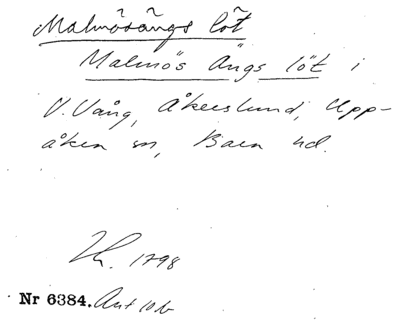 Malmösängs löt
Malmös Ängs löt i
V. Vång, Åkerslund, Upp-
åkra sn, Bara hd.
1798
Nr 6384. Ant 10 b